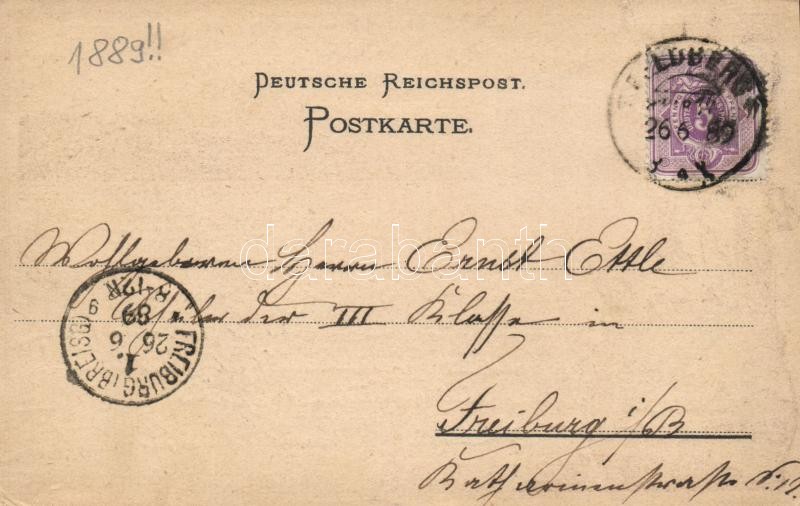 1889!!
DEUTSCHE REICHSPOST.
POSTKARTE.
FELDBERG
26 6 89
Wollgeboren Herrn Ernst Ettle
der III Klasse in
Freiburg i/B
Katharinenstrasse
FREIBURG (BREISG)
1.
26 6
89
8-12N
darabanth